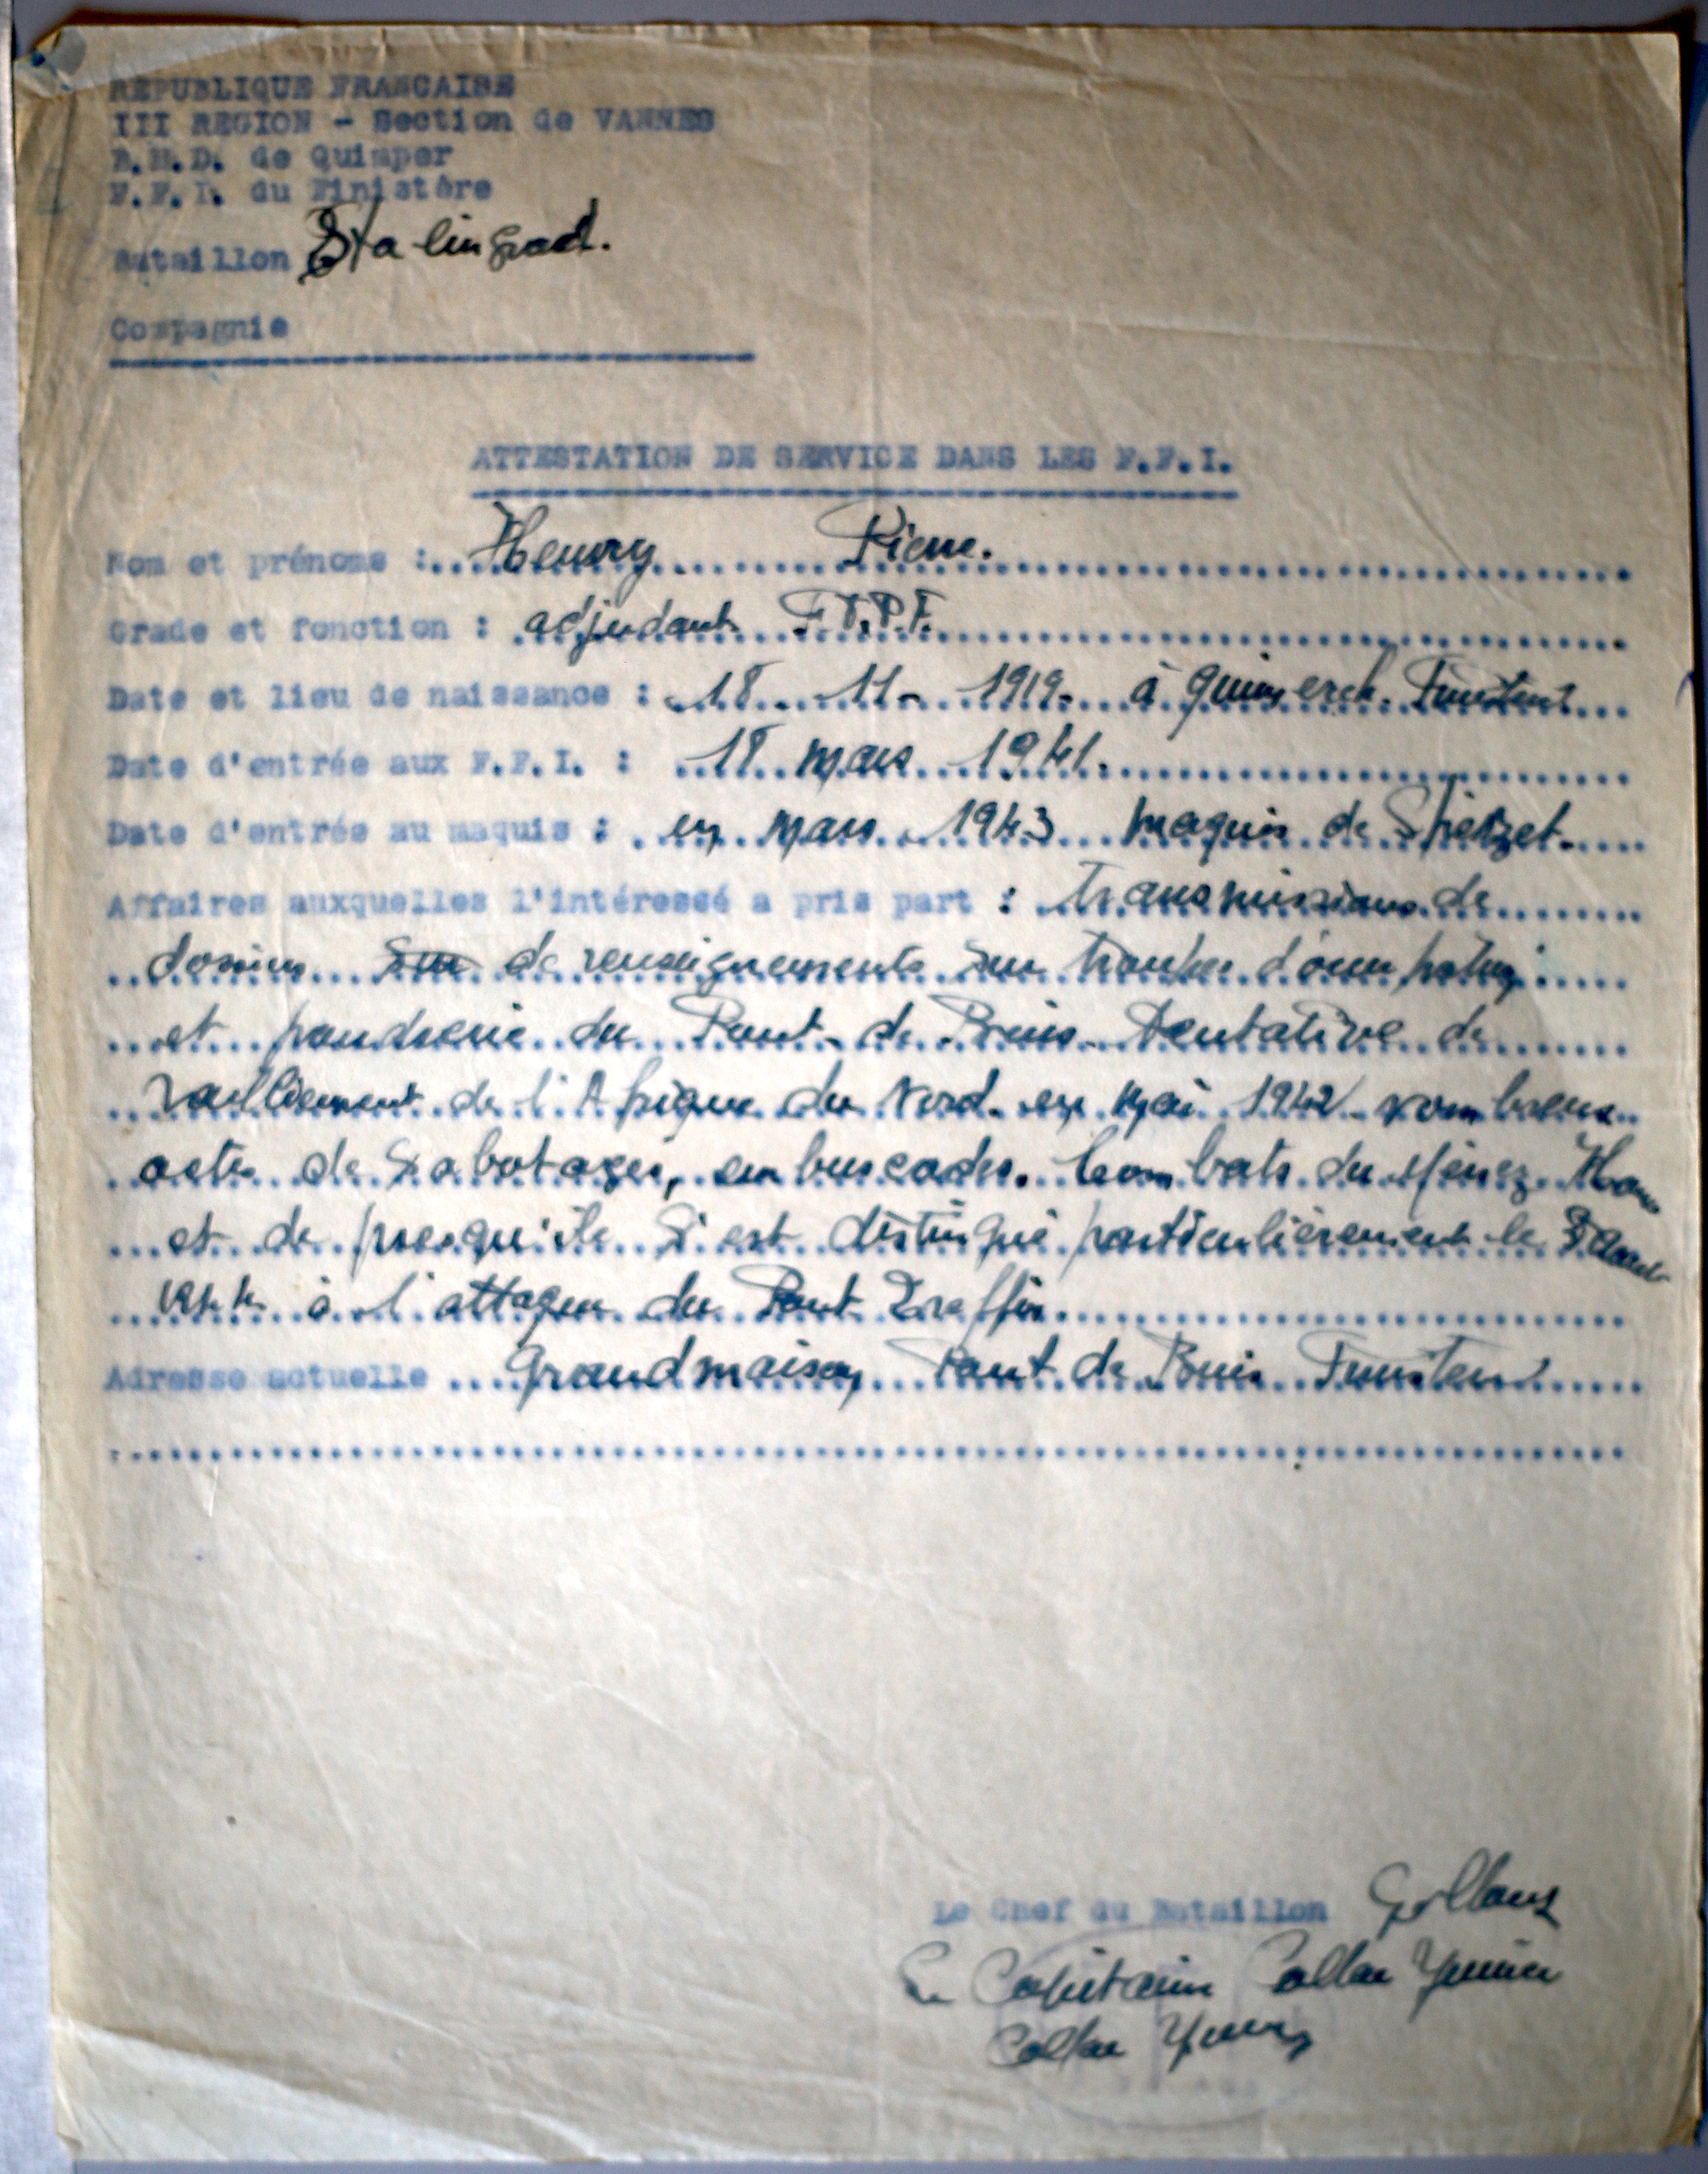 REPUBLIQUE FRANCAISE
III REGION - Section de VANNES
B.M.D. de Quimper
F.F.I. du Finistère
Bataillon Stalingrad.
Compagnie
ATTESTATION DE SERVICE DANS LES F.F.I.
Nom et prénoms : Henry Pierre.
Grade et fonction : adjudant F.T.P.F.
Date et lieu de naissance : 18 - 11 - 1919 - à Quimerch. Finistère
Date d'entrée aux F.F.I. : 18 mars 1941.
Date d'entrée au maquis : en mars 1943 maquis de
Affaires auxquelles l'intéressé a pris part : transmissions de
dossiers de renseignements sur troupes d'occupation
et poudrerie du Pont-de-Buis. Tentative de
ralliement de l'Afrique du Nord en mai 1942 - nombreux
actes de sabotages, embuscades. Combats du Menez Hom
et de presqu'île S'est distingué particulièrement le
1944 à l'attaque du Pont
Adresse actuelle Grandmaison Pont de Buis Finistère
Le Chef du Bataillon
Le Capitaine